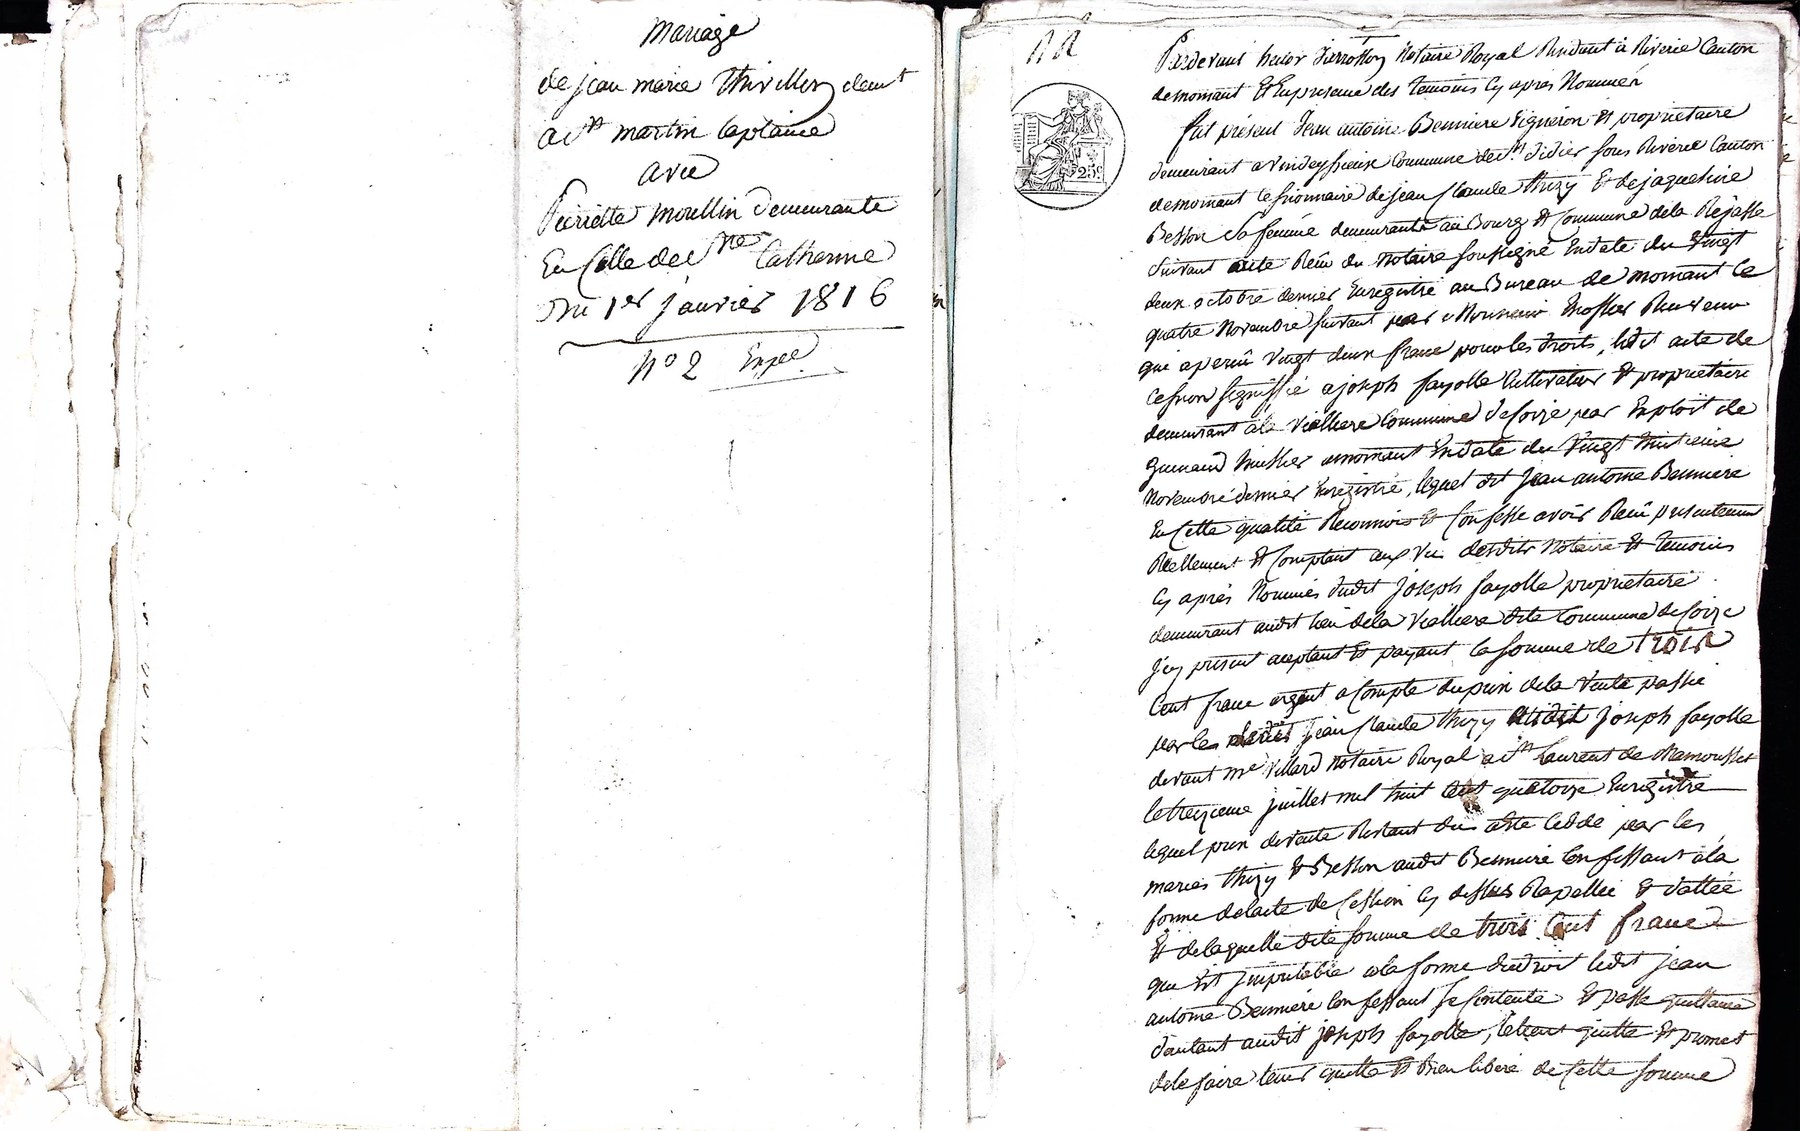 Mariage
de jean marie thivillon demt
a st martin laplaine
avec
Pierrette moullin demeurante
En Celle de ste Catherine
Du 1er janvier 1816
No 2 Exped
Pardevant notaire Royal Residant à Riverie Canton
demornant Et Enpresence des temoins Cy apres Nommés
fut présent Jean antoine Bennière vigneron Et propriétaire
demeurant a Commune de st didier sous Riverie Canton
demornant Cessionnaire de jean Claude thizy Et de jaqueline
Besson Sa femme demeurants au Bourg Et Commune dela Rajasse
Suivant acte Reçu du Notaire soussigné Endate du vingt
deux octobre dernier Enregistré au Bureau de mornant le
quatre Novembre suivant par Monsieur Receveur
qui aperçu vingt deux franc pour les droits, ledit acte de
Cession signiffié a joseph fayolle Cultivateur Et propriétaire
demeurant ala Commune de par Exploit de
huissier amornant Endate du Vingt huitieme
Novembre dernier Enregistré, lequel dit Jean antoine Bennière
En Cette qualité Reconnois Et Confesse avoir Reçu presentement
Réellement Et Comptant aux vu desdits Notaire Et temoins
Cy aprés Nommés dudit joseph fayolle propriétaire
demeurant audit lieu dela dite Commune de
jcy present aceptant Et payant la somme de trois
Cent franc argent a Compte du prix dela Vente passée
par les jean Claude thizy audit joseph fayolle
devant me Villard Notaire Royal a st Laurent de Chamousset
le treizieme juillet mil huit Cent quatorze Enregistré
lequel prix de vente Restant du a été Cédé par les
mariés thizy Et Besson audit Bennière Confessant à la
forme delacte de Cession Cy dessus Rapellé Et datté
Et delaquelle dite somme de trois Cent franc
qui Est jmputable ala forme dudroit ledit jean
antoine Bennière Confessant se Contente Et passe quittance
dautant audit joseph fayolle, letient quitte Et promet
dele faire tenir quitte Et Bien liberé de Cette somme